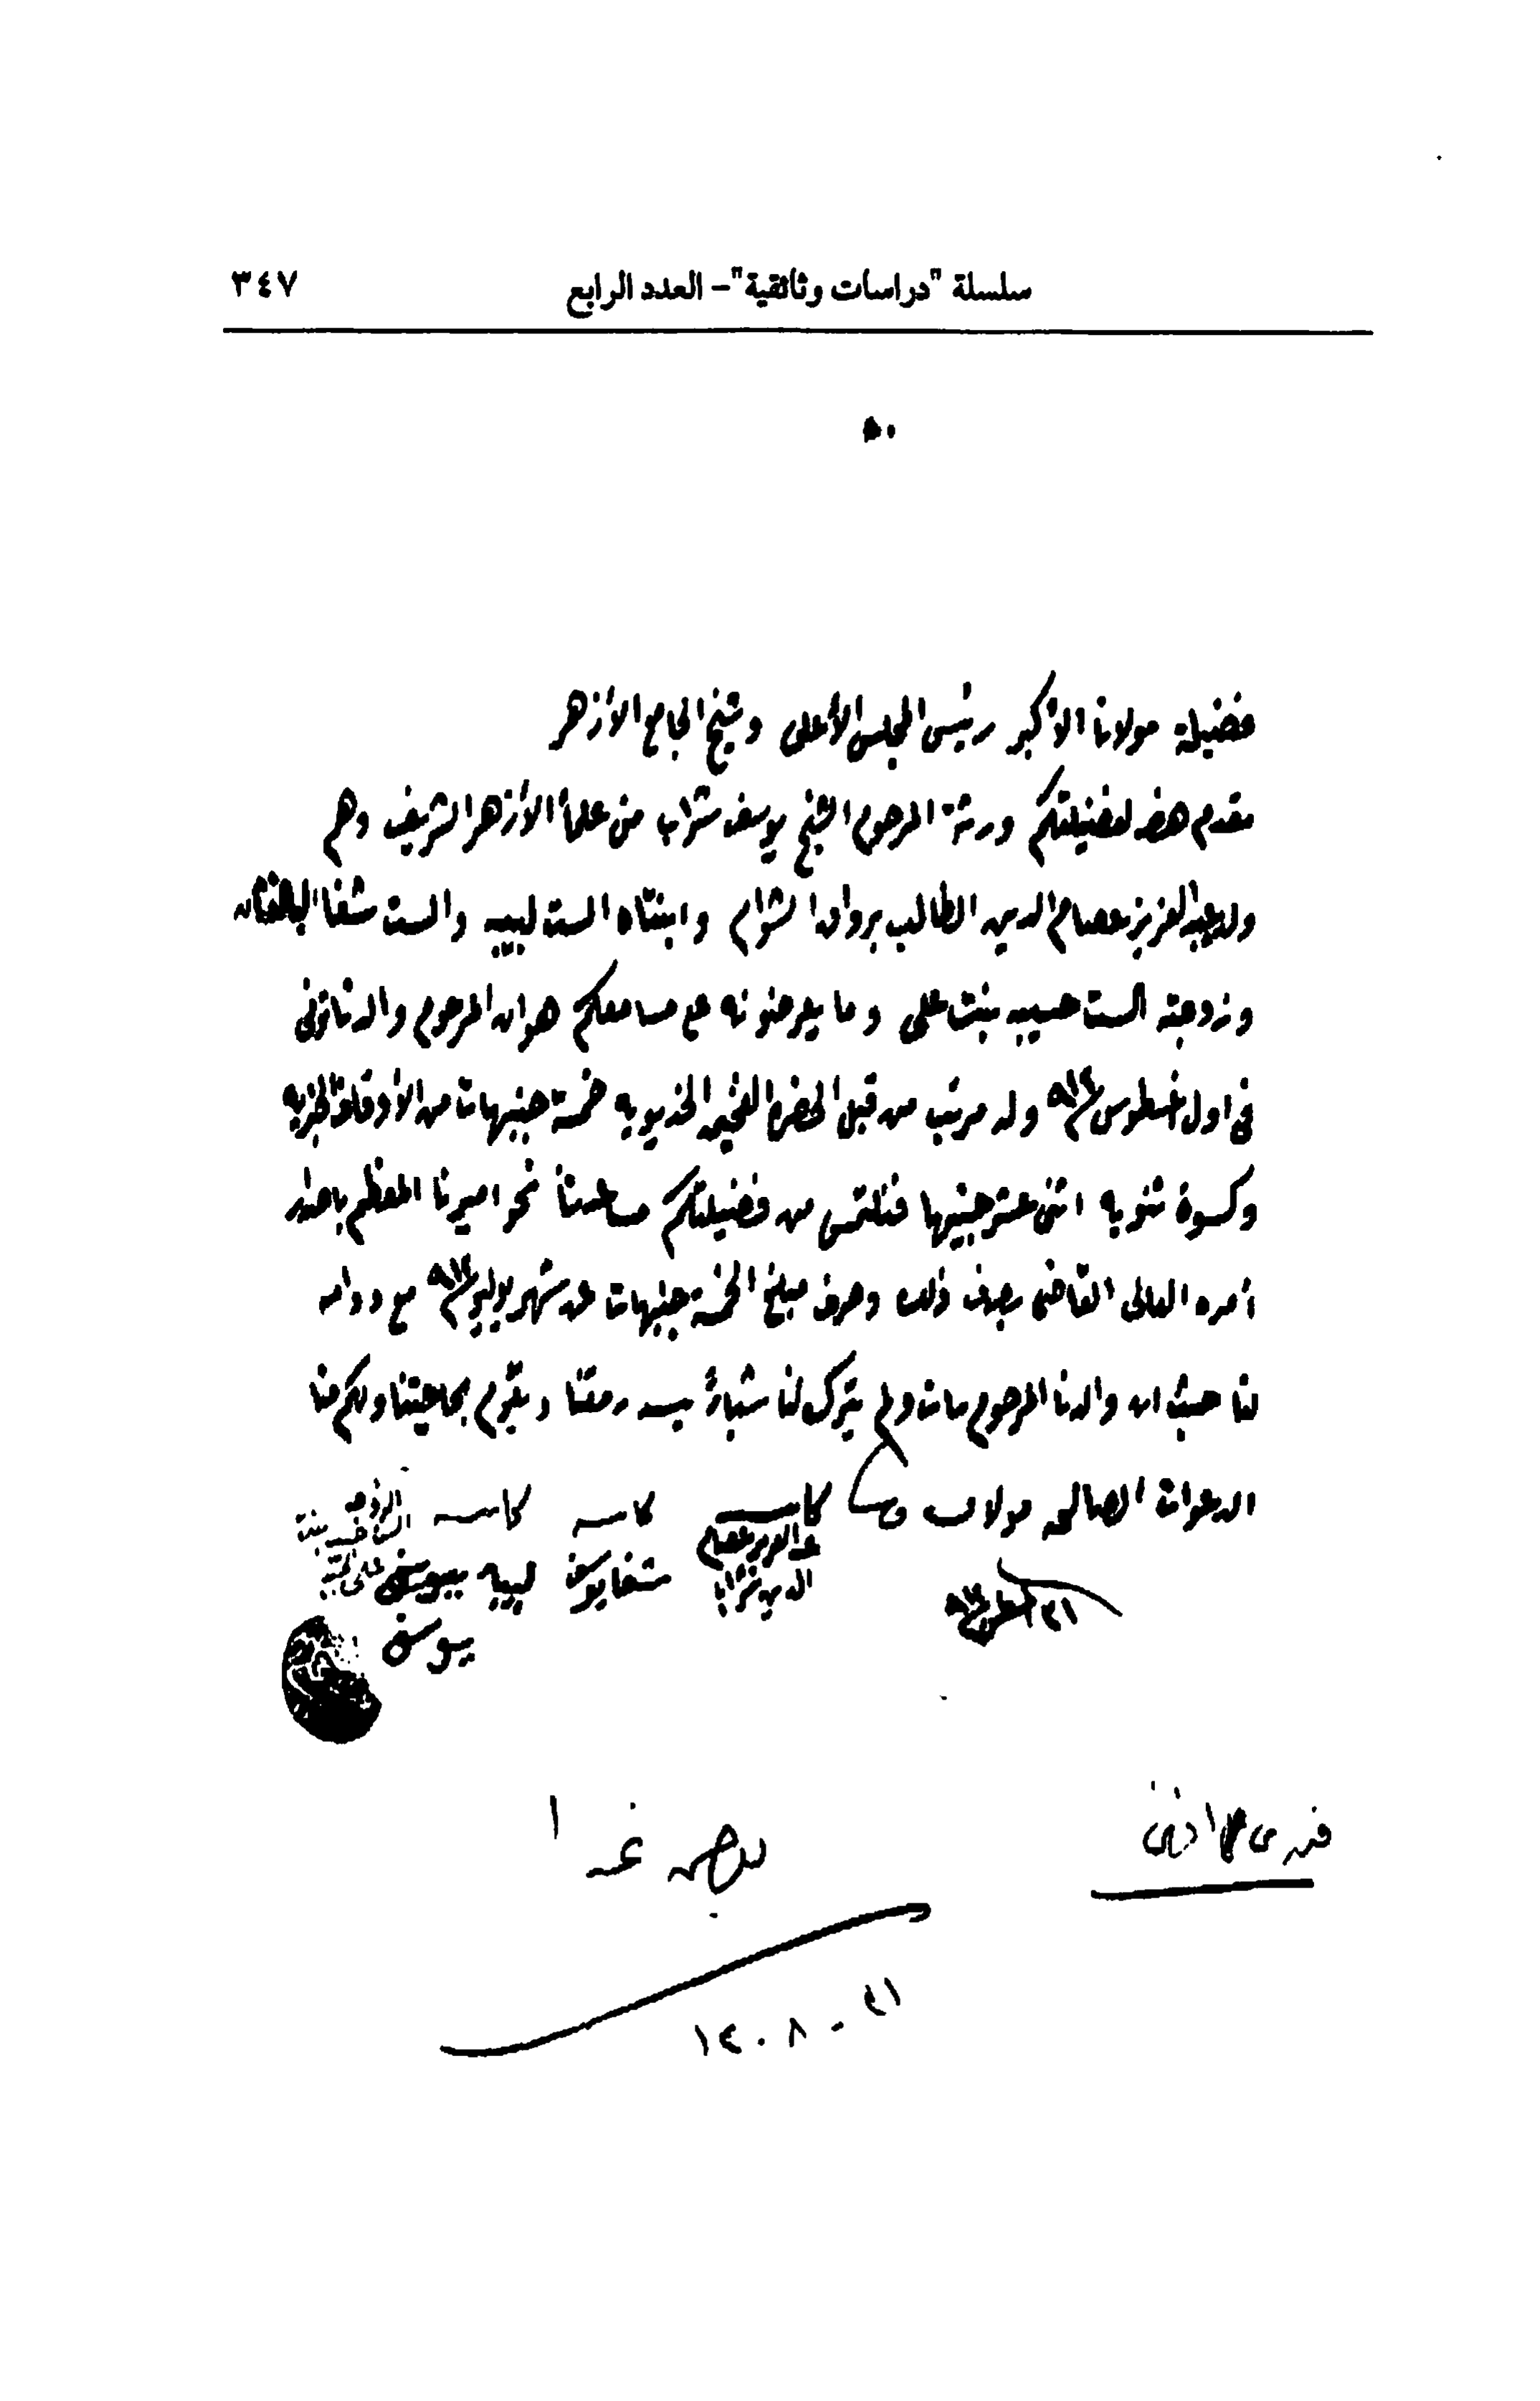 سلسلة "دراسات وثائقية"– العدد الرابع ٣٤٧
فضيلة مولانا الأكبر رئيس المجلس الأعلى وشيخ الجامع الأزهر
مقدم هذا لفضيلتكم ورثة المرحوم الشيخ يوسف شراب من علماء الأزهر الشريف وهم
ولده عبد العزيز عصام الدين الطالب برواق الشوام وابنتاه الست لبيبه والست شفا البالغتان
وزوجته الست حسيبه بنت علي وما يعرضونه على مسامعكم هو ان المرحوم والدنا توفى
في اول اغسطس وله مرتب من قبل الحضرة الفخيمه الخديويه خمسة جنيهات من الأوقاف الخيريه
وكسوة سنويه اثنى عشر جنيها فنلتمس من فضيلتكم مساعدتنا نحو اميرنا المعظم باصدار
أمره العالى القاضى بصرف ذلك وصرف مبلغ الخمسة جنيهات عن شهر يوليو مع دوامه
لنا حيث ان والدنا المرحوم مات ولم يترك لنا شيئا يسد رمقنا ويقوم بحاجيتنا ولكم منا
الدعوات الصالحه مولاى
كاتبه كاتبه كاتبه
عبد العزيز عصام الدين شراب
شفا يوسف
لبيبه يوسف
يوسف
٢١ اغسطس
غدا
٢١ - ٨